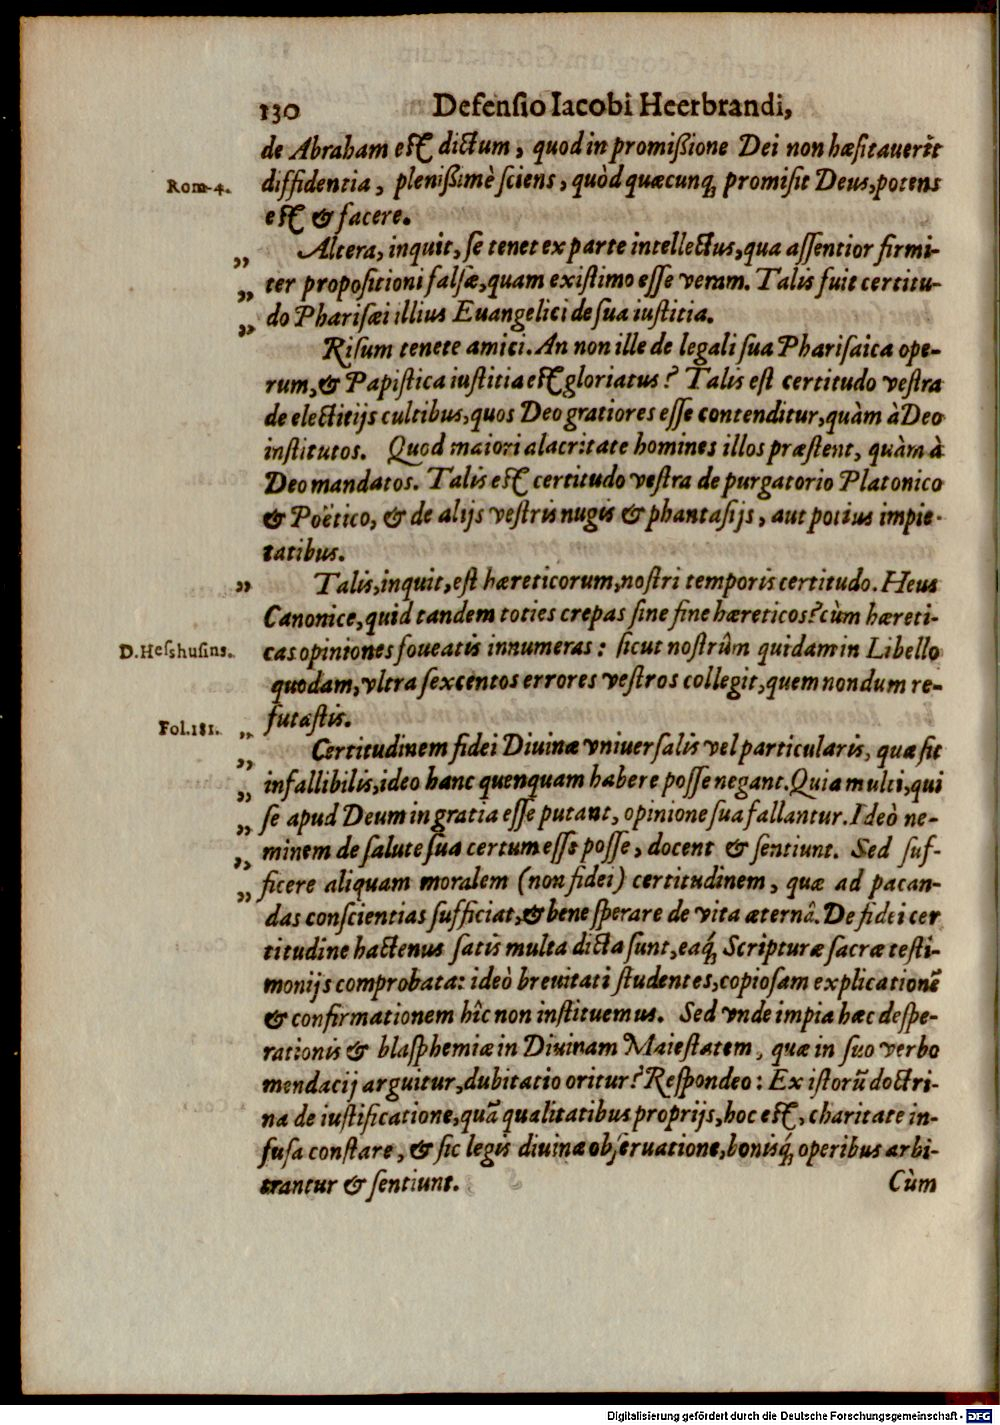 130 Defensio Iacobi Heerbrandi,
de Abraham est dictum, quod in promißione Dei non hæsitauerit
Rom. 4. diffidentia, plenißimè sciens, quòd quæcunq; promisit Deus, potens
est & facere.
„ Altera, inquit, se tenet ex parte intellectus, qua assentior firmi-
„ ter propositioni falsæ, quam existimo esse veram. Talis fuit certitu-
„ do Pharisæi illius Euangelici de sua iustitia.
Risum tenete amici. An non ille de legali sua Pharisaica ope-
rum, & Papistica iustitia est gloriatus? Talis est certitudo vestra
de electitijs cultibus, quos Deo gratiores esse contenditur, quàm à Deo
institutos. Quod maiori alacritate homines illos præstent, quàm à
Deo mandatos. Talis est certitudo vestra de purgatorio Platonico
& Poëtico, & de alijs vestris nugis & phantasijs, aut potius impie-
tatibus.
„ Talis, inquit, est hæreticorum, nostri temporis certitudo. Heus
Canonice, quid tandem toties crepas sine fine hæreticos? cùm hæreti-
D. Hesshusius. cas opiniones foueatis innumeras: sicut nostrûm quidam in Libello
quodam, vltra sexcentos errores vestros collegit, quem nondum re-
Fol. 181. „ futastis.
„ Certitudinem fidei Diuinæ vniuersalis vel particularis, quæ sit
„ infallibilis, ideo hanc quenquam habere posse negant. Quia multi, qui
„ se apud Deum in gratia esse putant, opinione sua fallantur. Ideò ne-
„ minem de salute sua certum esse posse, docent & sentiunt. Sed suf-
„ ficere aliquam moralem (non fidei) certitudinem, quæ ad pacan-
das conscientias sufficiat, & bene sperare de vita æternâ. De fidei cer
titudine hactenus satis multa dicta sunt, eaq́; Scripturæ sacræ testi-
monijs comprobata: ideò breuitati studentes, copiosam explicationẽ
& confirmationem hîc non instituemus. Sed vnde impia hæc despe-
rationis & blasphemiæ in Diuinam Maiestatem, quæ in suo verbo
mendacij arguitur, dubitatio oritur? Respondeo: Ex istorũ doctri-
na de iustificatione, quã qualitatibus proprijs, hoc est, charitate in-
fusa constare, & sic legis diuinæ obseruatione, bonisq́; operibus arbi-
trantur & sentiunt. Cùm
Digitalisierung gefördert durch die Deutsche Forschungsgemeinschaft - DFG